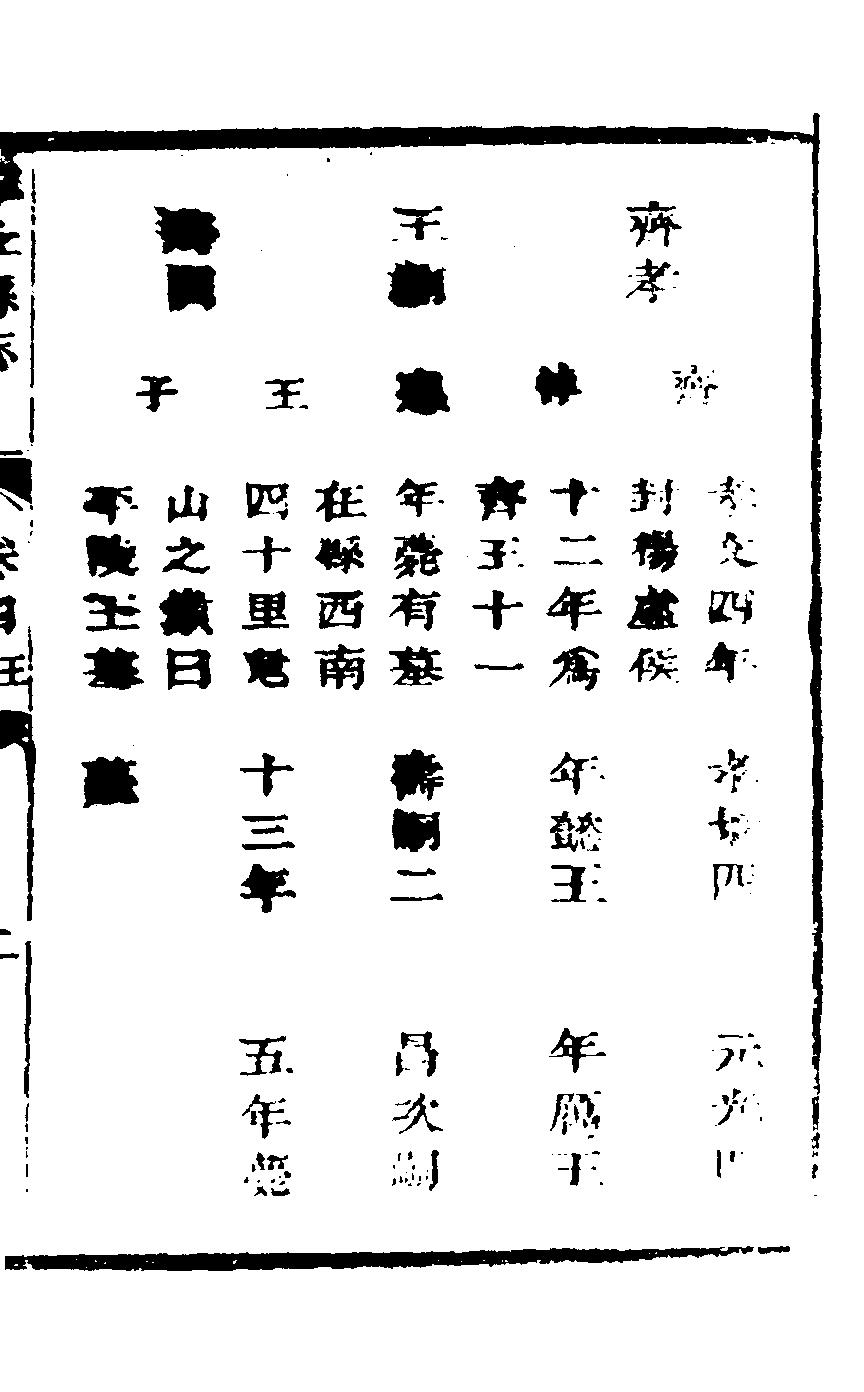 齊孝
王
齊
悼
惠
王
子
孝文四年
封楊虛侯
十二年爲
齊王十一
年薨有墓
在縣西南
四十里
山之曰
平陵王墓
孝景四
年懿王
壽嗣二
十三年
薨
元光四
年厲王
昌次嗣
五年薨